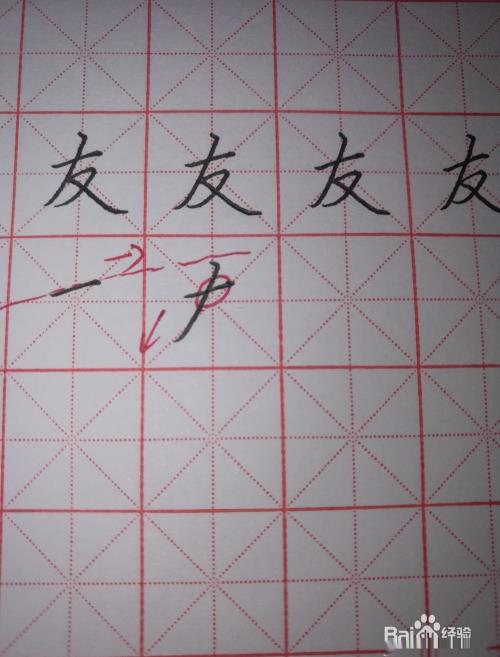 友 友 友 友
Bai 经验